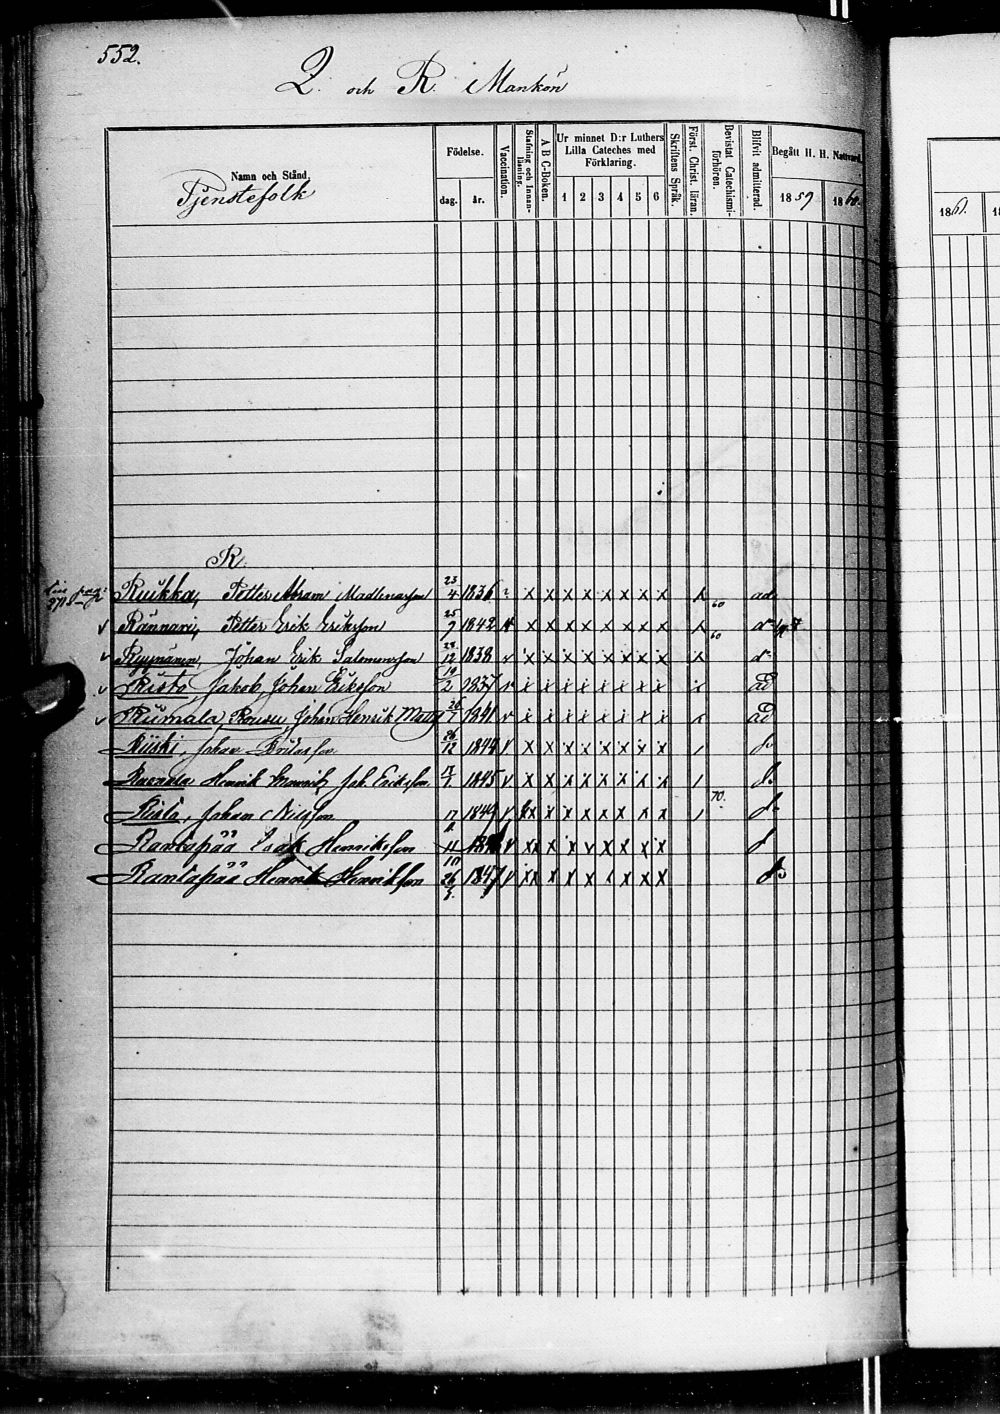 552.
Q. och R. Mankön
Namn och Stånd.
Tjenstefolk
Födelse.
dag.
år.
Vaccination.
Stafning och Innanläsning.
A B C-Boken.
Ur minnet D:r Luthers Lilla Cateches med Förklaring.
1 2 3 4 5 6
Skriftens Språk.
Först. Christ. läran.
Bevistat Catechismiförhören.
Blifvit admitterad.
Begått H. H. Nattvard.
1859
1860.
1861.
R.
Ruikka, Petter Abram Madlenasson 23/4 1836 x x x x x x x x x 60 ad
v Rännäri, Petter Erik Eriksson 25/9 1842 x x x x x x x x x 60
v Ryynänen, Johan Erik Salomonsson 28/12 1838 v x x x x x x x x x
v Risto Jakob Johan Eriksson 19/2 1837 v x x x x x x x x x ad
v Rumala, Johan Henrik Matts 1841 v x x x x x x x x x ad
Riiski, Johan 26/12 1844 v x x x x x x x x
Henrik Joh. Eriksson 1845 v x x x x x x x x
Risto, Johan Nilsson 17 1849 v x x x x x x x x 70.
Rantapää Isak Henriksson 11 v x x x x x x x x
Rantapää Henrik Henriksson 26 1847 v x x x x x x x x